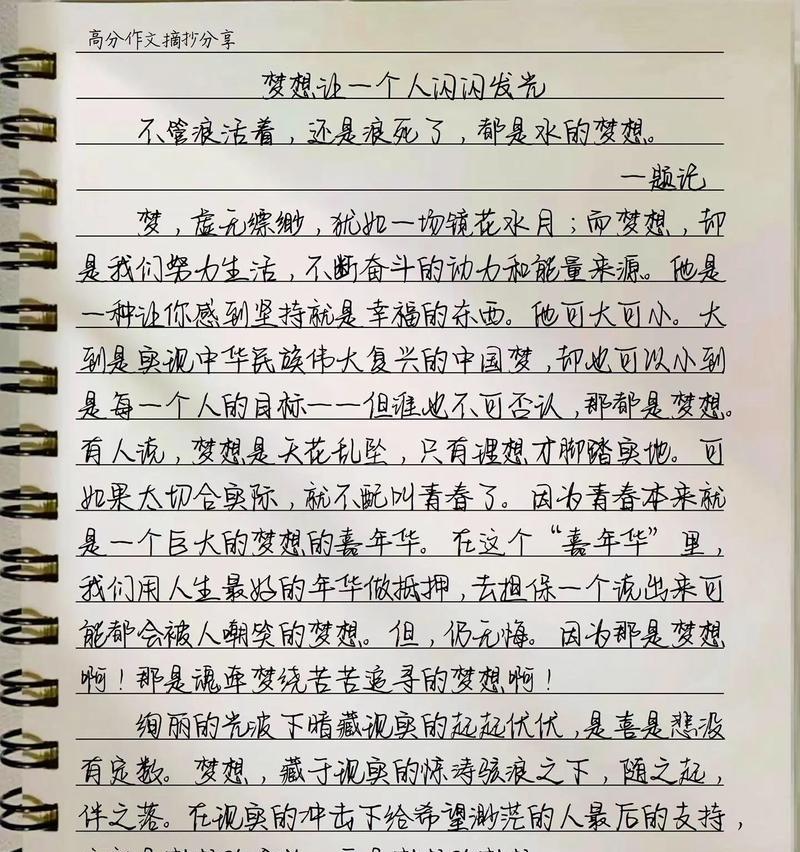 高分作文摘抄分享
梦想让一个人闪闪发光
不管浪活着，还是浪死了，都是水的梦想。
一题记
梦，虚无缥缈，犹如一场镜花水月；而梦想，却
是我们努力生活，不断奋斗的动力和能量来源。他是
一种让你感到坚持就是幸福的东西。他可大可小。大
到是实现中华民族伟大复兴的中国梦，却也可以小到
是每一个人的目标——但谁也不可否认，那都是梦想。
有人说，梦想是天花乱坠，只有理想才脚踏实地。可
如果太切合实际，就不配叫青春了。因为青春本来就
是一个巨大的梦想的嘉年华。在这个“嘉年华”里，
我们用人生最好的年华做抵押，去担保一个说出来可
能都会被人嘲笑的梦想。但，仍无悔。因为那是梦想
啊！那是魂牵梦绕苦苦追寻的梦想啊！
绚丽的光波下暗藏现实的起起伏伏，是喜是悲没
有定数。梦想，藏于现实的惊涛骇浪之下，随之起，
伴之落。在现实的冲击下给希望渺茫的人最后的支持，